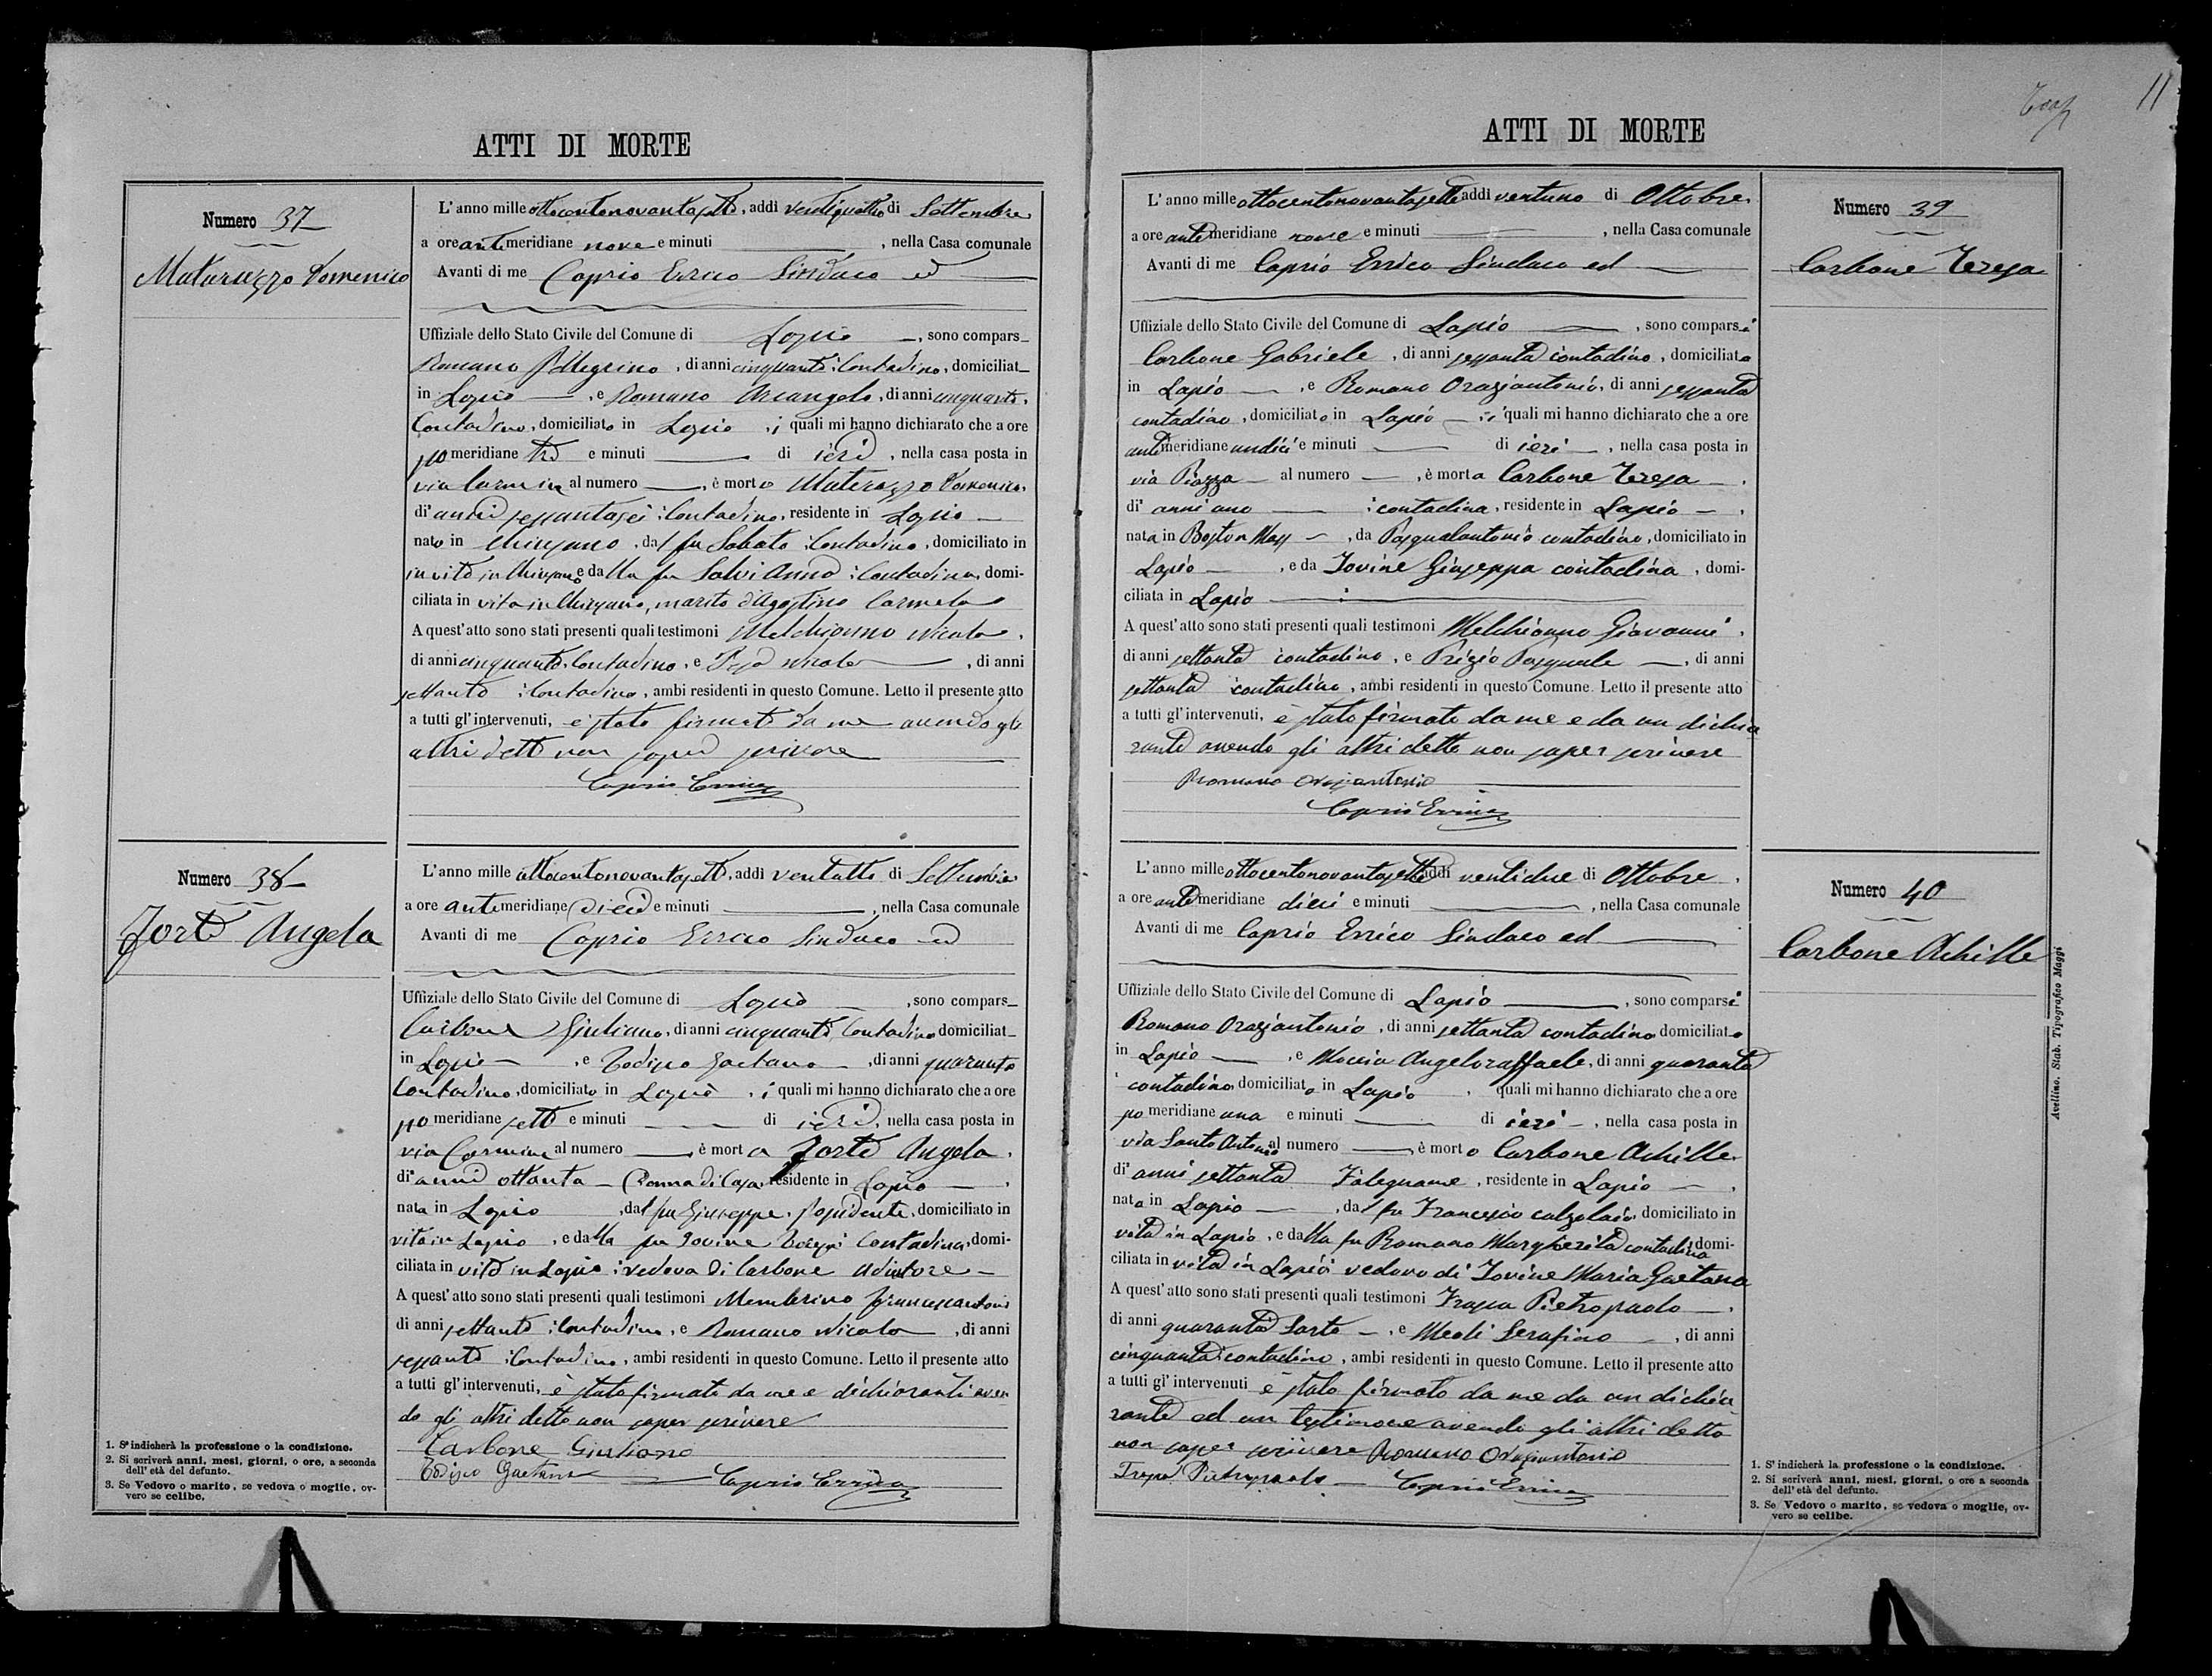 ATTI DI MORTE
Numero 37
Matarazzo Domenico
L'anno mille ottocentonovantasette, addì ventiquattro di Settembre
a ore antimeridiane nove e minuti , nella Casa comunale
Avanti di me Caprio Errico Sindaco ed
Uffiziale dello Stato Civile del Comune di Lapio , sono compars
Romano Pellegrino, di anni cinquanta contadino, domiciliat
in Lapio , e Romano Arcangelo, di anni cinquanta,
Contadino, domiciliato in Lapio , i quali mi hanno dichiarato che a ore
pomeridiane tre e minuti di ieri , nella casa posta in
via Carmine al numero , è morto Matarazzo Domenico,
di anni sessantasei contadino, residente in Lapio
nato in , dal fu Sabato contadino, domiciliato in
in vita in e dalla fu Salvi Anna contadina, domi-
ciliata in vita in , marito d'Agostino Carmela
A quest'atto sono stati presenti quali testimoni Melchionno Nicola,
di anni cinquanta, contadino, e Nicola , di anni
settanta contadino, ambi residenti in questo Comune. Letto il presente atto
a tutti gl'intervenuti, è stato firmato da me avendo gli
altri detto non saper scrivere
Caprio Errico
Numero 38
Forte Angela
L'anno mille ottocentonovantasette, addì ventotto di Settembre
a ore antimeridiane dieci e minuti , nella Casa comunale
Avanti di me Caprio Errico Sindaco ed
Uffiziale dello Stato Civile del Comune di Lapio , sono compars
Carbone Giuliano, di anni cinquanta, contadino domiciliat
in Lapio , e Todisco Gaetano , di anni quaranta
Contadino, domiciliato in Lapio , i quali mi hanno dichiarato che a ore
pomeridiane sette e minuti di ieri, nella casa posta in
via Carmine al numero , è morta Forte Angela,
di anni ottanta Donna di Casa residente in Lapio
nata in Lapio , dal fu Giuseppe, possidente, domiciliato in
vita in Lapio, e dalla fu Iovine contadina, domi-
ciliata in vita in Lapio vedova di Carbone
A quest'atto sono stati presenti quali testimoni Membrino Francescantonio
di anni settanta contadino, e Romano Nicola , di anni
sessanta contadino, ambi residenti in questo Comune. Letto il presente atto
a tutti gl'intervenuti, è stato firmato da me e dichiaranti aven
do gli altri detto non saper scrivere
Carbone Giuliano
Todisco Gaetano Caprio Errico
1. S'indicherà la professione o la condizione.
2. Si scriverà anni, mesi, giorni, o ore, a seconda
dell'età del defunto.
3. Se Vedovo o marito, se vedova o moglie, ov-
vero se celibe.
11
ATTI DI MORTE
Numero 39
Carbone Teresa
L'anno mille ottocentonovantasette addì ventuno di Ottobre,
a ore antimeridiane nove e minuti , nella Casa comunale
Avanti di me Caprio Errico Sindaco ed
Uffiziale dello Stato Civile del Comune di Lapio , sono comparsi
Carbone Gabriele, di anni sessanta contadino, domiciliato
in Lapio , e Romano Oraziantonio, di anni sessanta
contadino, domiciliato in Lapio , i quali mi hanno dichiarato che a ore
antimeridiane undici e minuti di ieri , nella casa posta in
via Piazza al numero , è morta Carbone Teresa ,
di anni uno contadina, residente in Lapio ,
nata in Boston Mass , da Pasqualantonio contadino, domiciliato in
Lapio , e da Iovine Giuseppa contadina , domi-
ciliata in Lapio
A quest'atto sono stati presenti quali testimoni Melchionno Giovanni,
di anni settanta contadino, e Prizio Pasquale , di anni
settanta contadino, ambi residenti in questo Comune. Letto il presente atto
a tutti gl'intervenuti, è stato firmato da me e da un dichia
rante avendo gli altri detto non saper scrivere
Romano Oraziantonio
Caprio Errico
Numero 40
Carbone Achille
L'anno mille ottocentonovantasette addì ventidue di Ottobre,
a ore antimeridiane dieci e minuti , nella Casa comunale
Avanti di me Caprio Errico Sindaco ed
Uffiziale dello Stato Civile del Comune di Lapio , sono comparsi
Romano Oraziantonio, di anni settanta contadino domiciliato
in Lapio , e Moccia Angeloraffaele, di anni quaranta
contadino domiciliato in Lapio , i quali mi hanno dichiarato che a ore
pomeridiane una e minuti di ieri , nella casa posta in
via Santo Antonio al numero , è morto Carbone Achille,
di anni settanta Falegname, residente in Lapio ,
nato in Lapio , dal fu Francesco calzolaio domiciliato in
vita in Lapio, e dalla fu Romano Margherita contadina domi-
ciliata in vita in Lapio vedovo di Iovine Maria Gaetana
A quest'atto sono stati presenti quali testimoni Pietropaolo ,
di anni quaranta Sarto , e Meoli Serafino , di anni
cinquanta contadino, ambi residenti in questo Comune. Letto il presente atto
a tutti gl'intervenuti è stato firmato da me da un dichia
rante ed un testimone avendo gli altri detto
non saper scrivere Romano Oraziantonio
Pietropaolo Caprio Errico
1. S'indicherà la professione o la condizione.
2. Si scriverà anni, mesi, giorni, o ore a seconda
dell'età del defunto.
3. Se Vedovo o marito, se vedova o moglie, ov-
vero se celibe.
Avellino. Stab. Tipografico Maggi